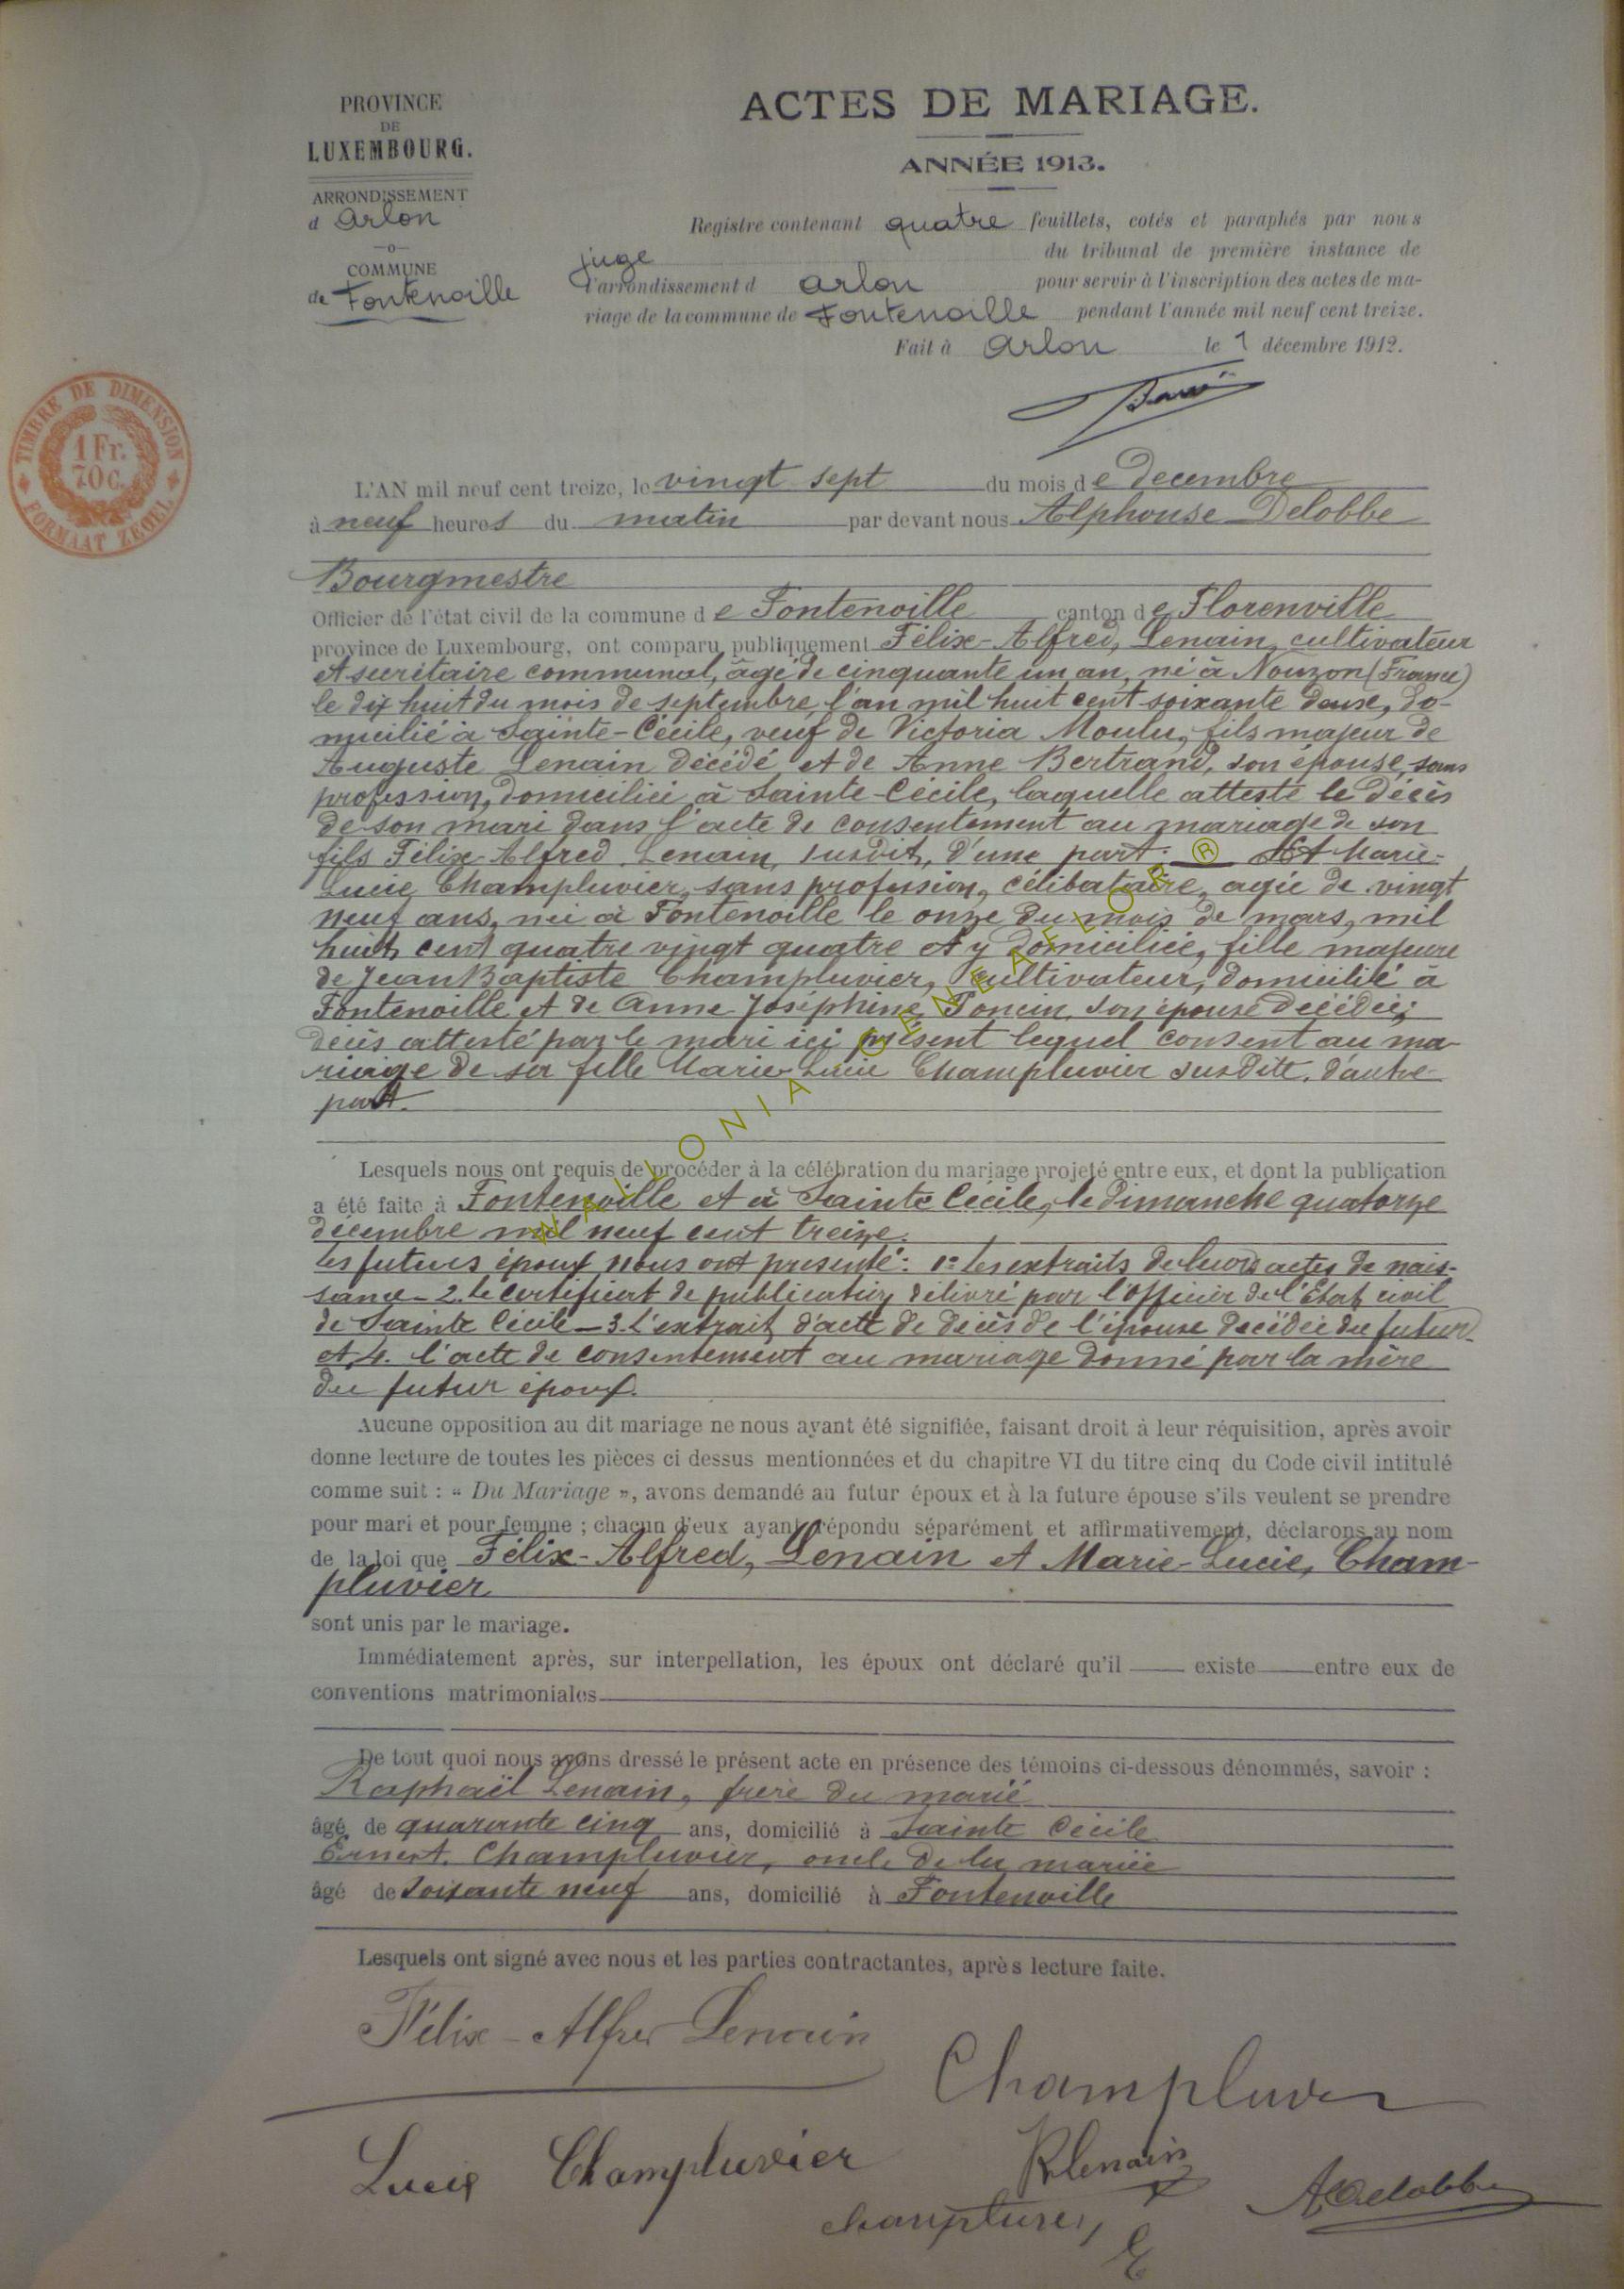 PROVINCE
DE
LUXEMBOURG.
ARRONDISSEMENT
d Arlon
COMMUNE
de Fontenoille
ACTES DE MARIAGE.
ANNÉE 1913.
Registre contenant quatre feuillets, cotés et paraphés par nous
juge du tribunal de première instance de
l'arrondissement d Arlon pour servir à l'inscription des actes de ma-
riage de la commune de Fontenoille pendant l'année mil neuf cent treize.
Fait à Arlon le 7 décembre 1912.
TIMBRE DE DIMENSION
1 Fr.
70 C.
FORMAAT ZEGEL
L'AN mil neuf cent treize, le vingt sept du mois de Decembre
à neuf heures du matin par devant nous Alphonse Delobbe
Bourgmestre
Officier de l'état civil de la commune de Fontenoille canton de Florenville
province de Luxembourg, ont comparu publiquement Félix-Alfred, Lenain, cultivateur
et secrétaire communal, âgé de cinquante un an, né à Nouzon (France)
le dix huit du mois de septembre l'an mil huit cent soixante deux, do-
micilié à Sainte-Cécile, veuf de Victoria Moulu, fils majeur de
Auguste Lenain décédé et de Anne Bertrand, son épouse, sans
profession, domiciliée à Sainte-Cécile, laquelle atteste le décès
de son mari dans l'acte de consentement au mariage de son
fils Félix-Alfred Lenain, susdit, d'une part. Et Marie-
Lucie Champluvier, sans profession, célibataire, agée de vingt
neuf ans, née à Fontenoille le onze du mois de mars, mil
huit cent quatre vingt quatre et y domiciliée, fille majeure
de Jean Baptiste Champluvier, cultivateur, domicilié à
Fontenoille et de Anne Joséphine Poncin, son épouse décédée;
décès attesté par le mari ici présent lequel consent au ma-
riage de sa fille Marie-Lucie Champluvier susdite, d'autre
part.
Lesquels nous ont requis de procéder à la célébration du mariage projeté entre eux, et dont la publication
a été faite à Fontenoille et à Sainte Cécile, le Dimanche quatorze
décembre mil neuf cent treize.
Les futurs époux nous ont présenté: 1º Les extraits de leurs actes de nais-
sance - 2. Le certificat de publication délivré par l'Officier de l'Etat civil
de Sainte Cécile - 3. L'extrait d'acte de décès de l'épouse décédée du futur
et 4. l'acte de consentement au mariage donné par la mère
du futur époux.
Aucune opposition au dit mariage ne nous ayant été signifiée, faisant droit à leur réquisition, après avoir
donne lecture de toutes les pièces ci dessus mentionnées et du chapitre VI du titre cinq du Code civil intitulé
comme suit : « Du Mariage », avons demandé au futur époux et à la future épouse s'ils veulent se prendre
pour mari et pour femme ; chacun d'eux ayant répondu séparément et affirmativement, déclarons au nom
de la loi que Félix-Alfred, Lenain et Marie-Lucie, Cham-
pluvier
sont unis par le mariage.
Immédiatement après, sur interpellation, les époux ont déclaré qu'il existe entre eux de
conventions matrimoniales
De tout quoi nous avons dressé le présent acte en présence des témoins ci-dessous dénommés, savoir :
Raphaël Lenain, frère du marié
âgé de quarante cinq ans, domicilié à Sainte Cécile
Ernest Champluvier, oncle de la mariée
âgé de soixante neuf ans, domicilié à Fontenoille
Lesquels ont signé avec nous et les parties contractantes, après lecture faite.
Félix-Alfred Lenain
Champluvier
Lucie Champluvier
R Lenain
A Delobbe
E
WALLONIA GENEAFLOR ®